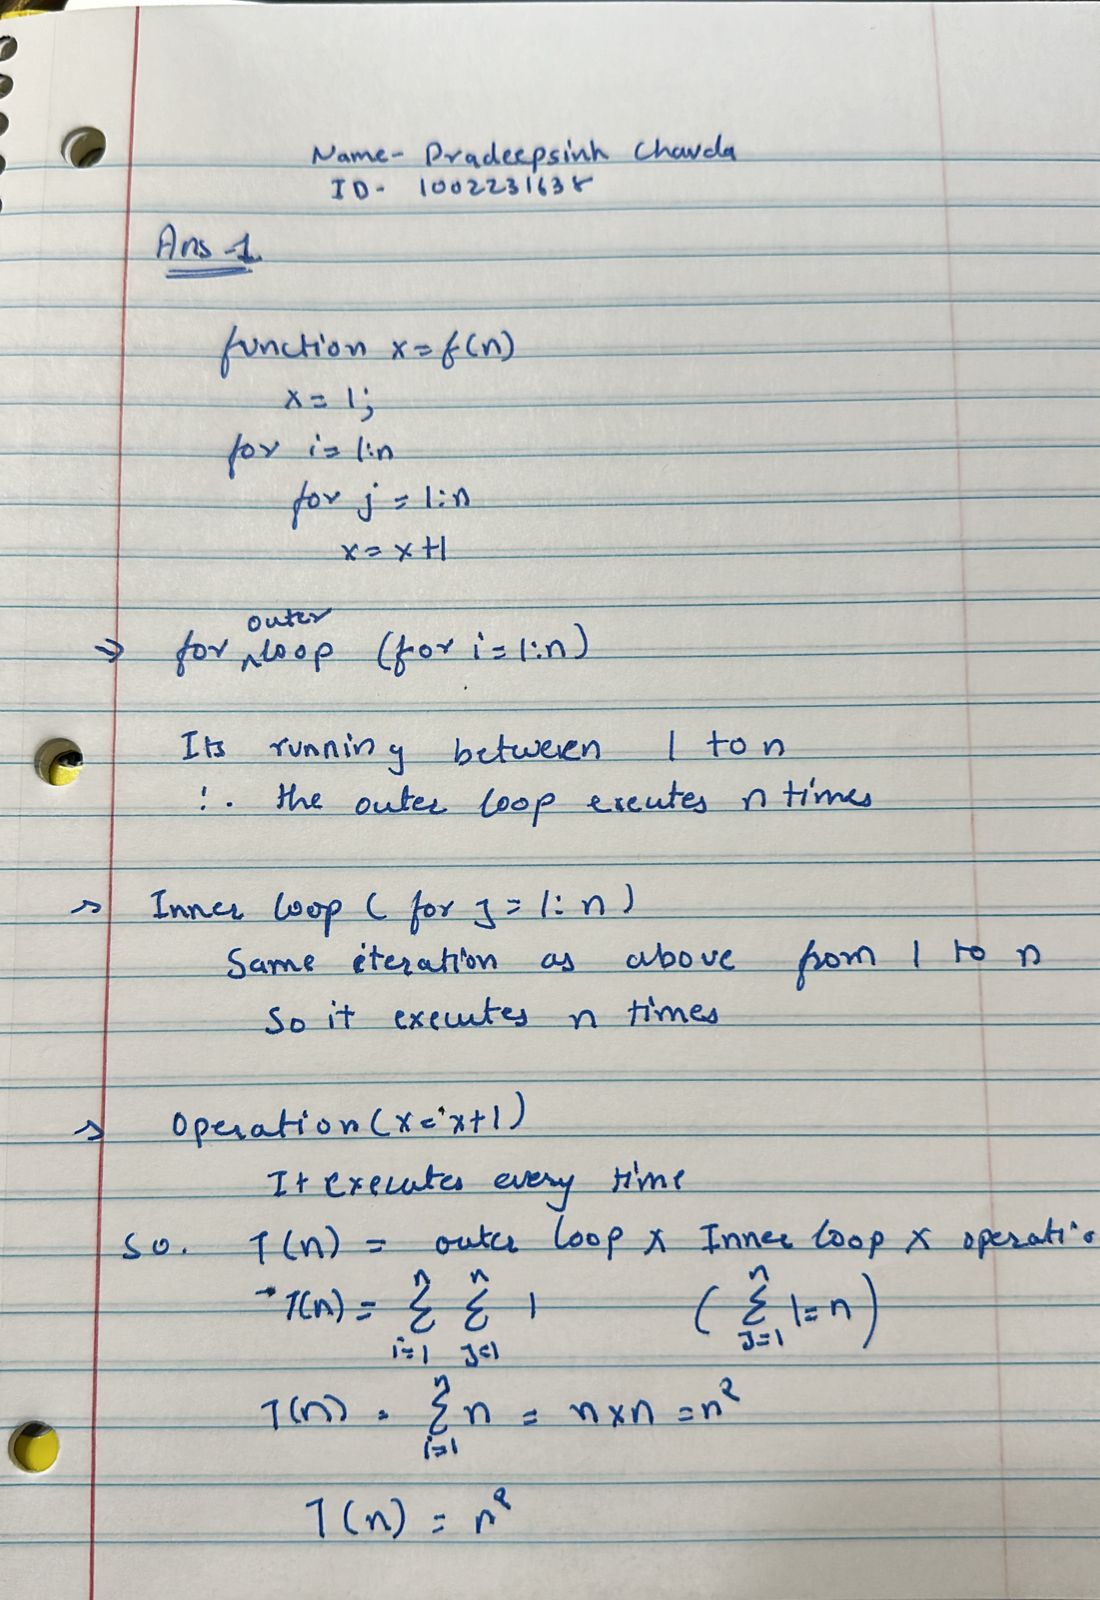 Name- Pradeepsinh Chavda
ID- 1002231638
Ans-1
function x=f(n)
x=1;
for i=1:n
for j=1:n
x=x+1
⇒ for outer loop (for i=1:n)
Its running between 1 to n
∴ the outer loop exeutes n times
→ Inner loop (for j=1:n)
Same iteration as above from 1 to n
So it executes n times
→ Operation (x=x+1)
It executes every time
So. T(n) = outer loop x Inner loop x operatio
T(n) = n∑i=1 n∑j=1 1 (n∑j=1 1=n)
T(n) = n∑i=1 n = n×n = n²
T(n) = n²